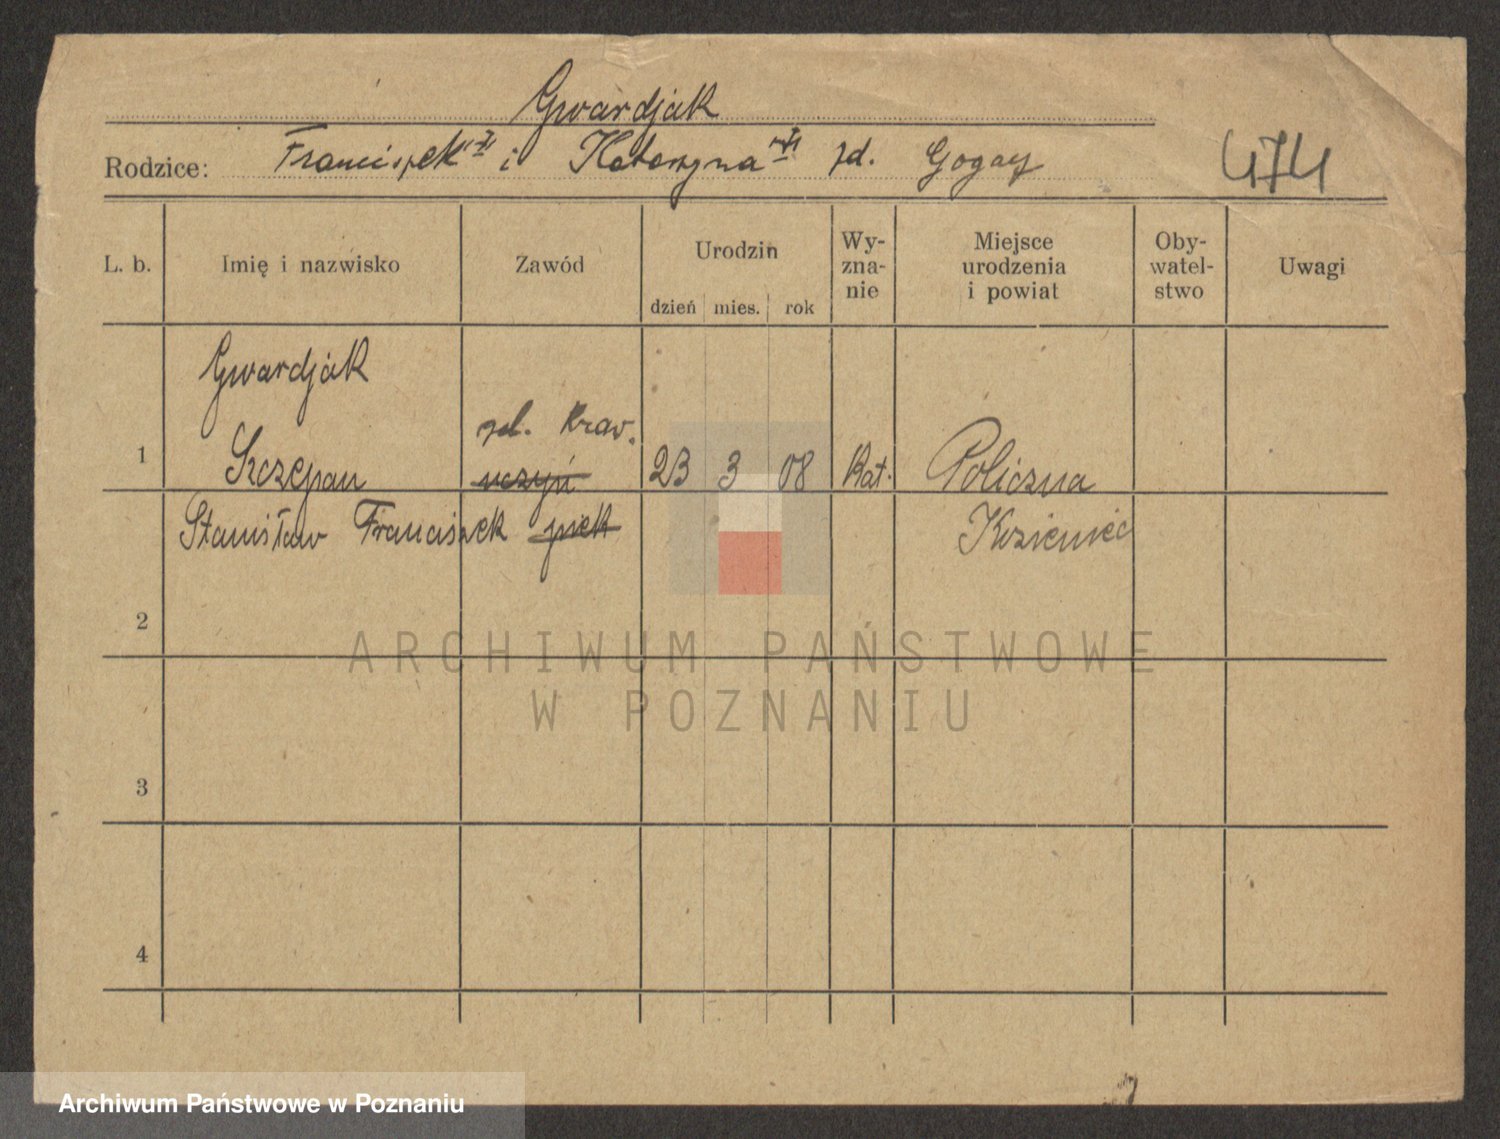 Gwardjak
Rodzice: Franciszek i Katarzyna zd. Gogacz
474
L. b. Imię i nazwisko Zawód Urodzin dzień mies. rok Wy-zna-nie Miejsce urodzenia i powiat Oby-watel-stwo Uwagi
Gwardjak
1 Szczepan uczyń 23 3 08 Kat. Policzna
Stanisław Franciszek piek Kozienice
2
3
4
ARCHIWUM PAŃSTWOWE
W POZNANIU
Archiwum Państwowe w Poznaniu